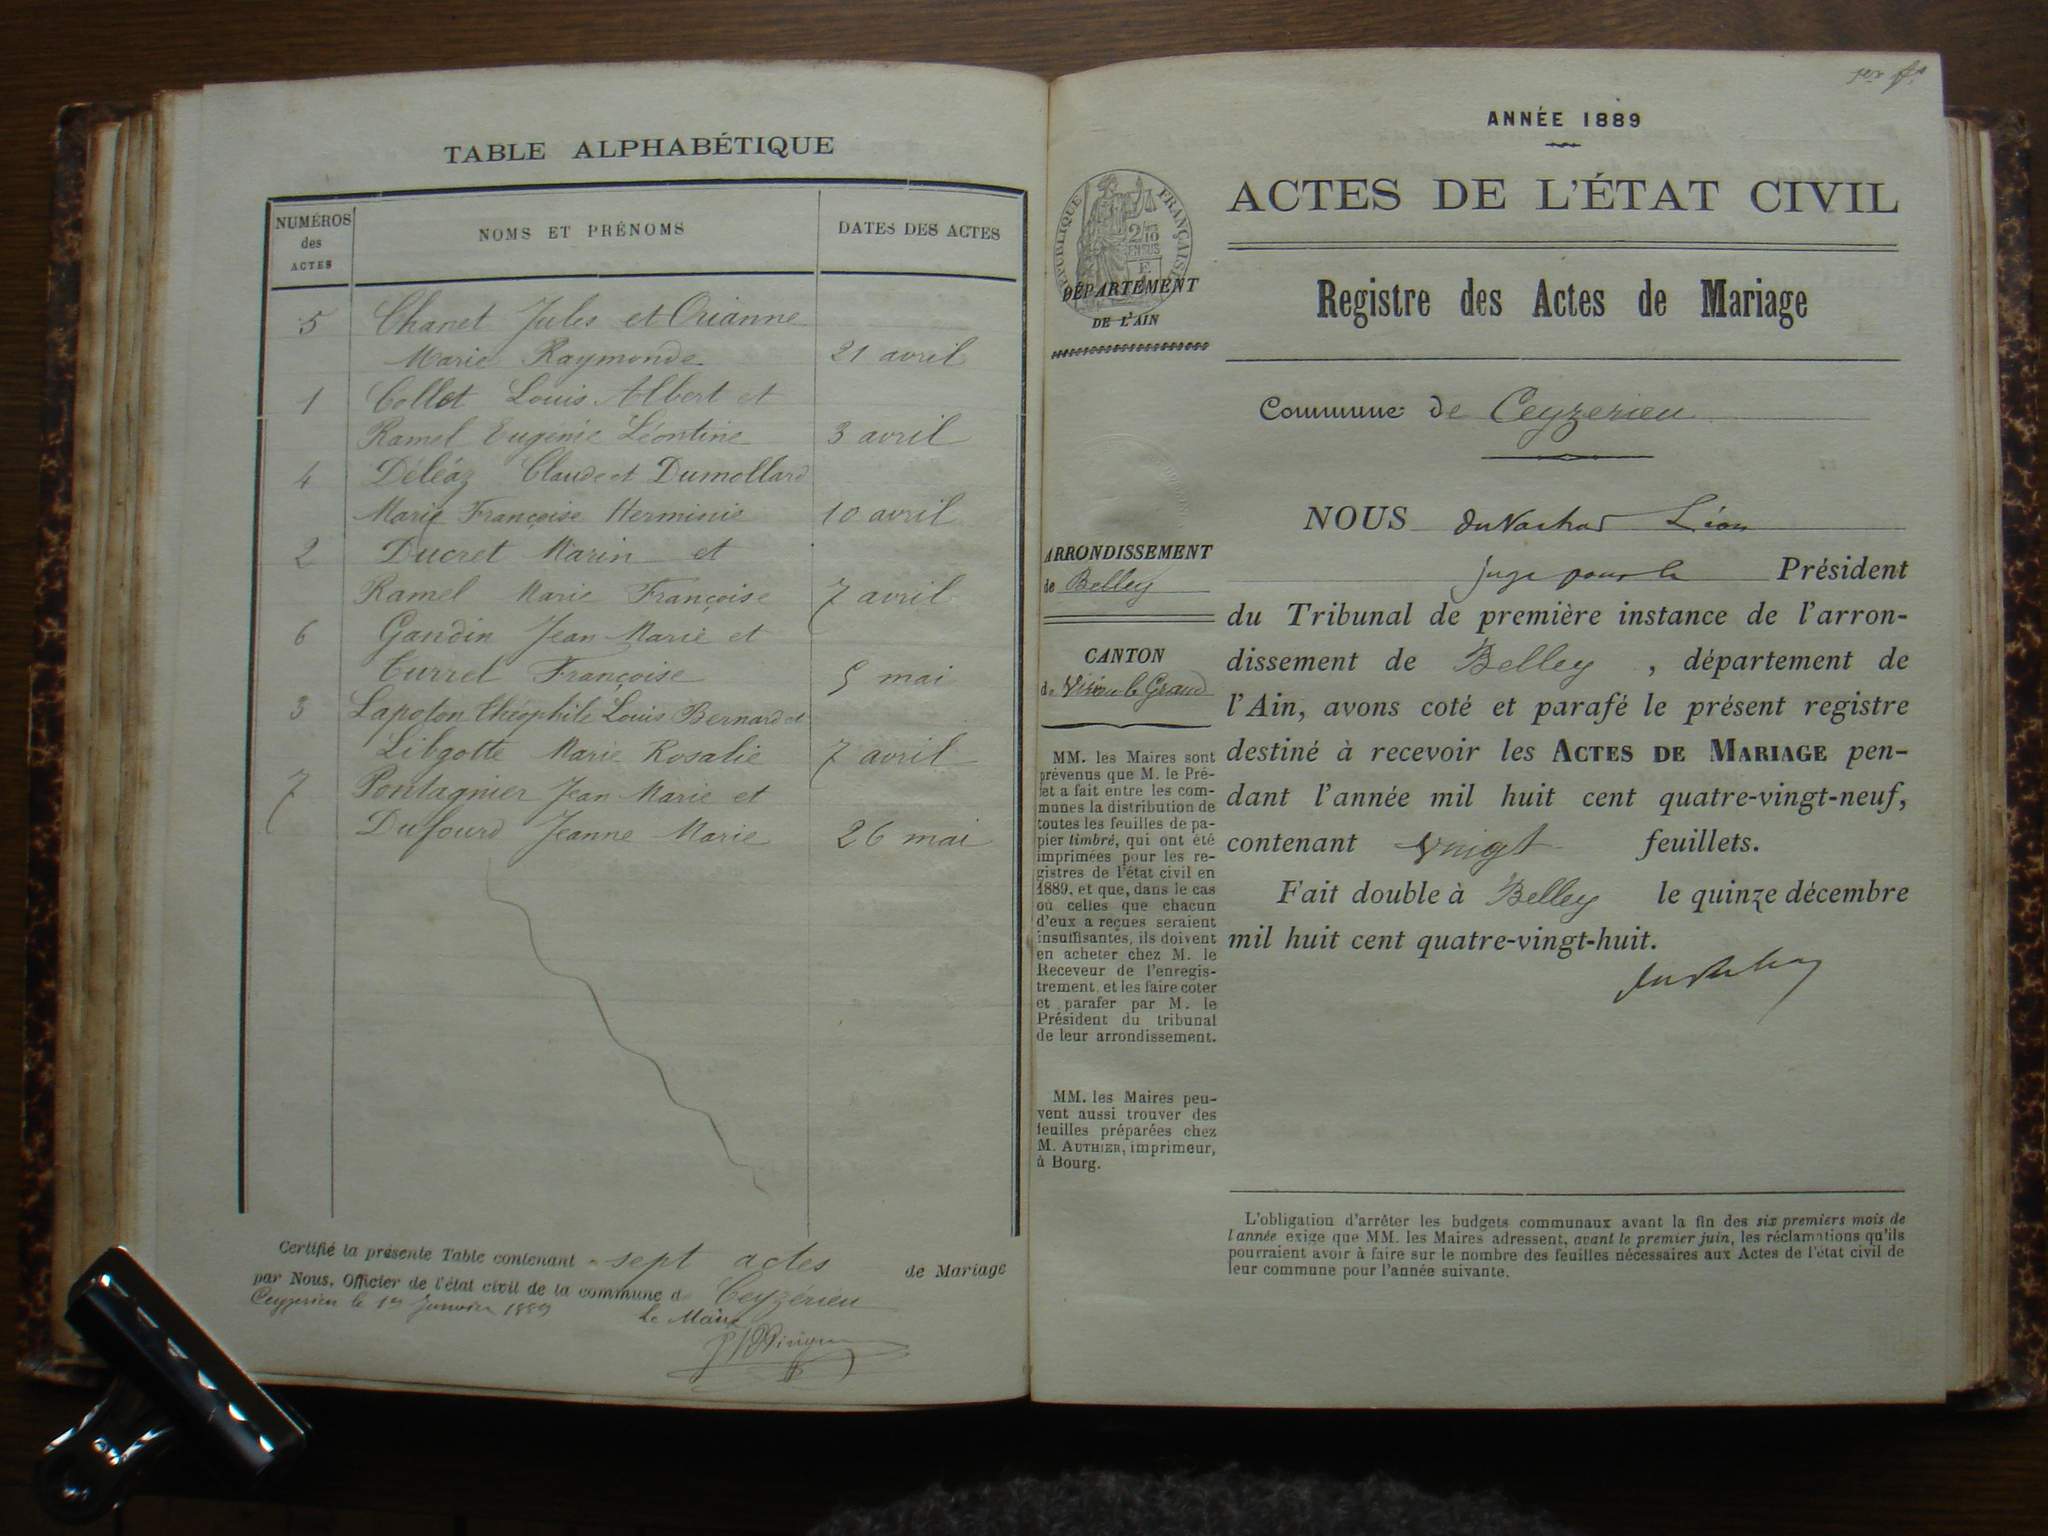 TABLE ALPHABÉTIQUE
NUMÉROS des ACTES
NOMS ET PRÉNOMS
DATES DES ACTES
5 Chanet Jules et Orianne
Marie Raymonde 21 avril
1 Collot Louis Albert et
Ramel Eugénie Léontine 3 avril
4 Déléaz Claude et Dumollard
Marie Françoise Herminie 10 avril
2 Ducret Marin et
Ramel Marie Françoise 7 avril
6 Gandin Jean Marie et
Currel Françoise 5 mai
3 Lapoton Théophile Louis Bernard et
Libgotte Marie Rosalie 7 avril
7 Pontagnier Jean Marie et
Dufourd Jeanne Marie 26 mai
Certifié la présente Table contenant sept actes de Mariage
par Nous, Officier de l'état civil de la commune de Ceyzérieu
Ceyzerieu le 1er Janvier 1889
Le Maire
1er ft
ANNÉE 1889
ACTES DE L'ÉTAT CIVIL
RÉPUBLIQUE FRANÇAISE
2/10 EN SUS
E
DÉPARTEMENT
DE L'AIN
Registre des Actes de Mariage
Commune de Ceyzerieu
ARRONDISSEMENT
de Belley
CANTON
de Virieu le Grand
MM. les Maires sont
prévenus que M. le Pré-
fet a fait entre les com-
munes la distribution de
toutes les feuilles de pa-
pier timbré, qui ont été
imprimées pour les re-
gistres de l'état civil en
1889, et que, dans le cas
où celles que chacun
d'eux a reçues seraient
insuffisantes, ils doivent
en acheter chez M. le
Receveur de l'enregis-
trement, et les faire coter
et parafer par M. le
Président du tribunal
de leur arrondissement.
MM. les Maires peu-
vent aussi trouver des
feuilles préparées chez
M. AUTHIER, imprimeur,
à Bourg.
NOUS Léon
juge pour le Président
du Tribunal de première instance de l'arron-
dissement de Belley , département de
l'Ain, avons coté et parafé le présent registre
destiné à recevoir les ACTES DE MARIAGE pen-
dant l'année mil huit cent quatre-vingt-neuf,
contenant vingt feuillets.
Fait double à Belley le quinze décembre
mil huit cent quatre-vingt-huit.
L'obligation d'arrêter les budgets communaux avant la fin des six premiers mois de
l'année exige que MM. les Maires adressent, avant le premier juin, les réclamations qu'ils
pourraient avoir à faire sur le nombre des feuilles nécessaires aux Actes de l'état civil de
leur commune pour l'année suivante.